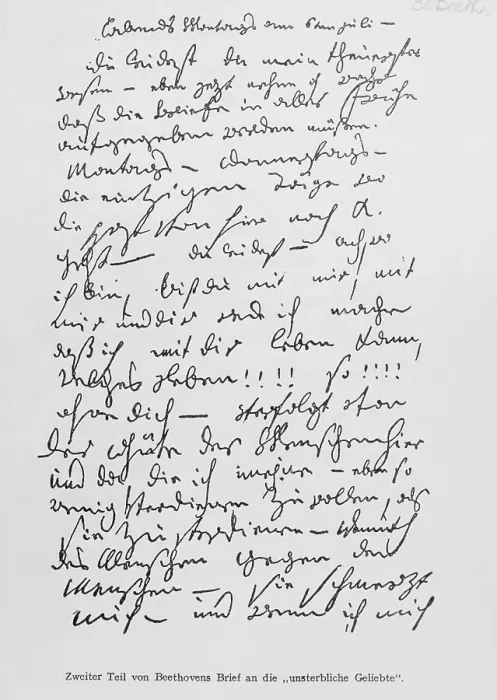 Abends Montags am 6ten juli —
Du leidest du mein theuerstes
wesen — eben jetzt nehme ich wahr
daß die Briefe in aller Frühe
aufgegeben werden müßen.
Montags — Donnerstags —
die eintzigen Täge wo
die Post von hier nach K.
geht — du leidest — ach, wo
ich bin, bist du mit mir, mit
mir und dir rede ich mache
daß ich mit dir leben kann,
welches Leben!!!! so!!!!
ohne dich — verfolgt von
der Güte der Menschen hier
und da, die ich meine — eben so
wenig verdienen zu wollen, als
sie zu verdienen — Demuth
des Menschen gegen den
Menschen — sie schmerzt
mich — und wenn ich mich
Zweiter Teil von Beethovens Brief an die „unsterbliche Geliebte“.